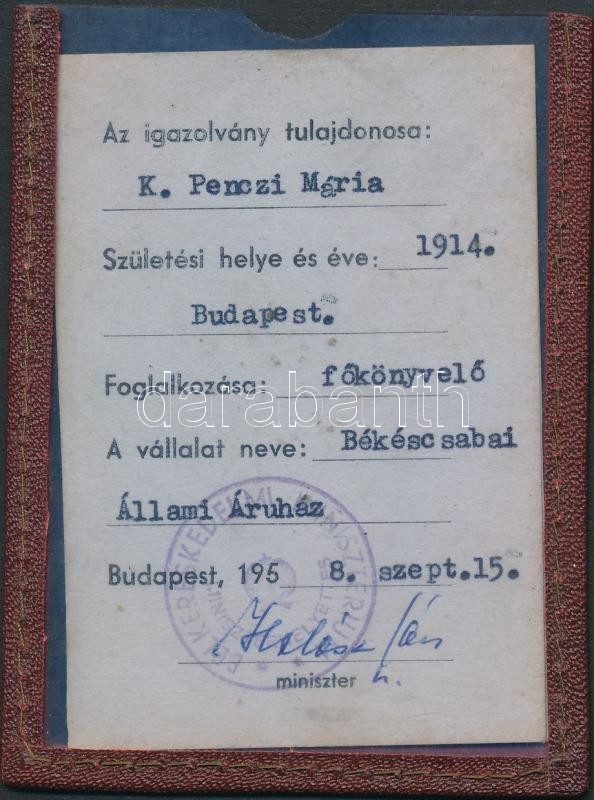 Az igazolvány tulajdonosa:
K. Penczi Mária
Születési helye és éve: 1914.
Budapest.
Foglalkozása: főkönyvelő
darabanth
A vállalat neve: Békéscsabai
Állami Áruház
BELKERESKEDELMI MINISZTÉRIUM
Budapest, 1958. szept.15.
János
miniszter h.